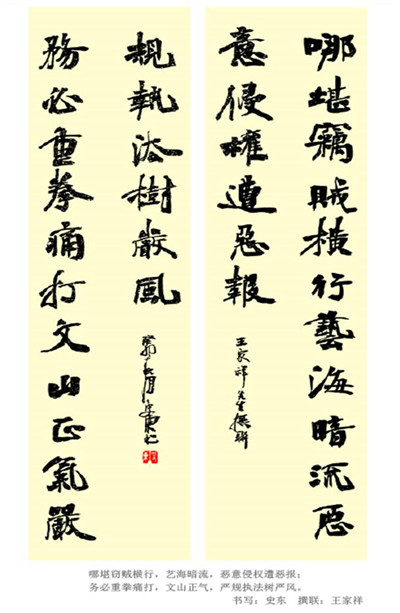 哪堪竊賊橫行藝海暗流恶
意侵權遭惡報
王家祥先生撰聯
務必重拳痛打文山正氣嚴
規執法樹嚴風
哪堪窃贼横行，艺海暗流，恶意侵权遭恶报；
务必重拳痛打，文山正气，严规执法树严风。
书写：史东 撰联：王家祥